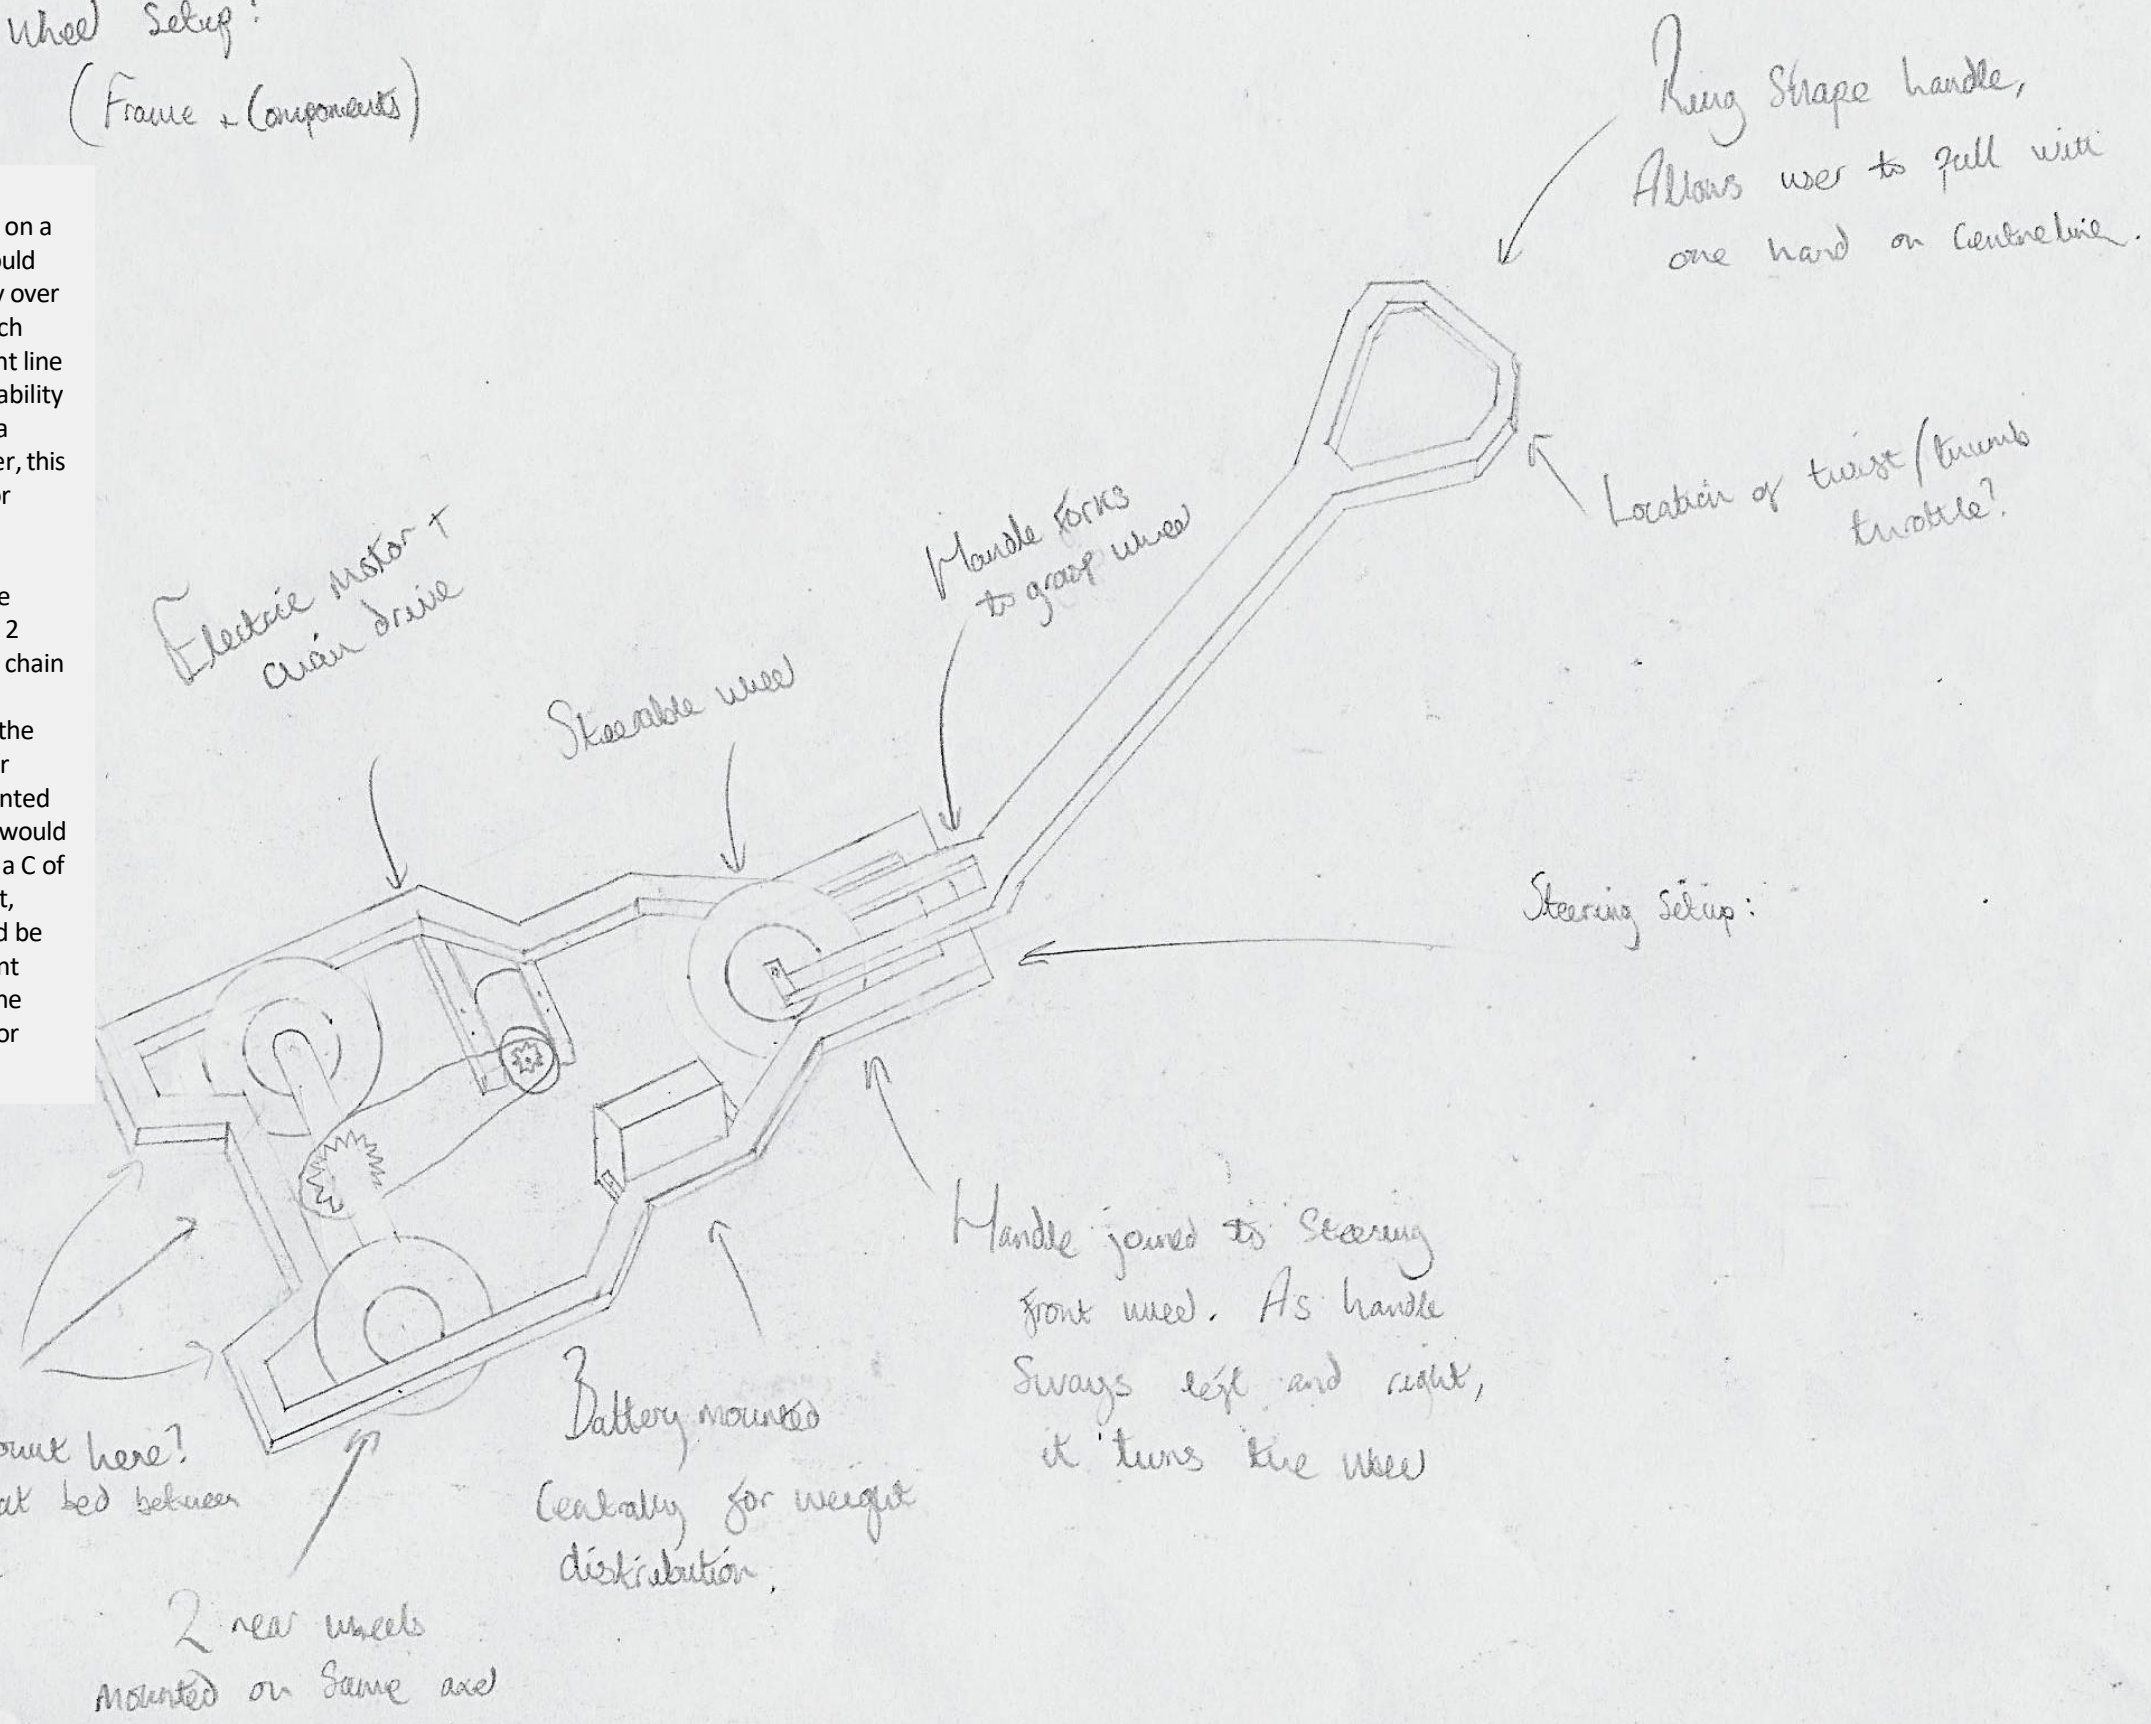 Wheel Setup:
(Frame + Components)
on a
ould
y over
ch
nt line
ability
a
er, this
or
e
2
chain
the
r
nted
would
a C of
t,
d be
nt
ne
or
Ring Shape handle,
Allows user to pull with
one hand on Centreline.
Location of twist/thumb
throttle?
Handle forks
to grasp wheel
Electric Motor +
chain drive
Steerable wheel
Steering Setup:
Handle joined to Steering
front wheel. As handle
Sways left and right,
it turns the wheel
Battery mounted
Centrally for weight
distribution.
ount here?
at bed between
2 rear wheels
mounted on Same axel